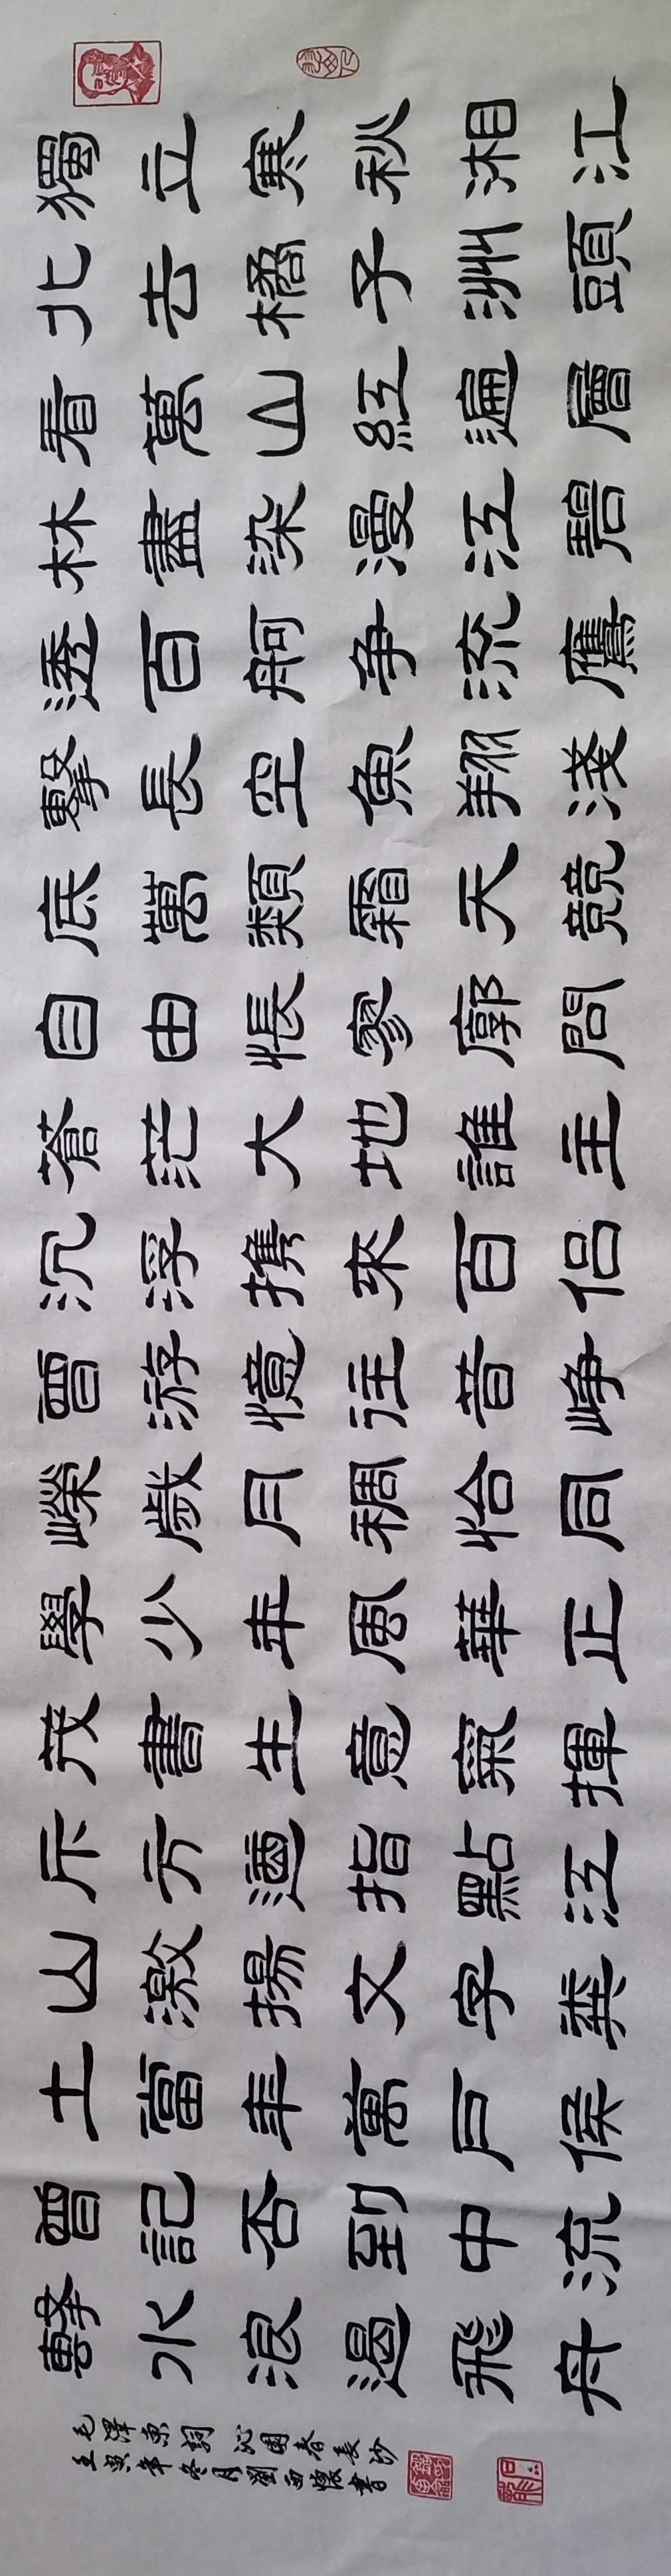 獨立寒秋湘江
北去橘子洲頭
看萬山紅遍層
林盡染漫江碧
透百舸争流鷹
擊長空魚翔淺
底萬類霜天競
自由悵寥廓問
蒼茫大地誰主
沉浮携來百侣
曾游憶往昔崢
嶸歲月稠恰同
學少年風華正
茂書生意氣揮
斥方遒指點江
山激揚文字糞
土當年萬戶侯
曾記否到中流
擊水浪遏飛舟
毛澤東詞 沁園春長沙
壬寅年冬月劉西懷書